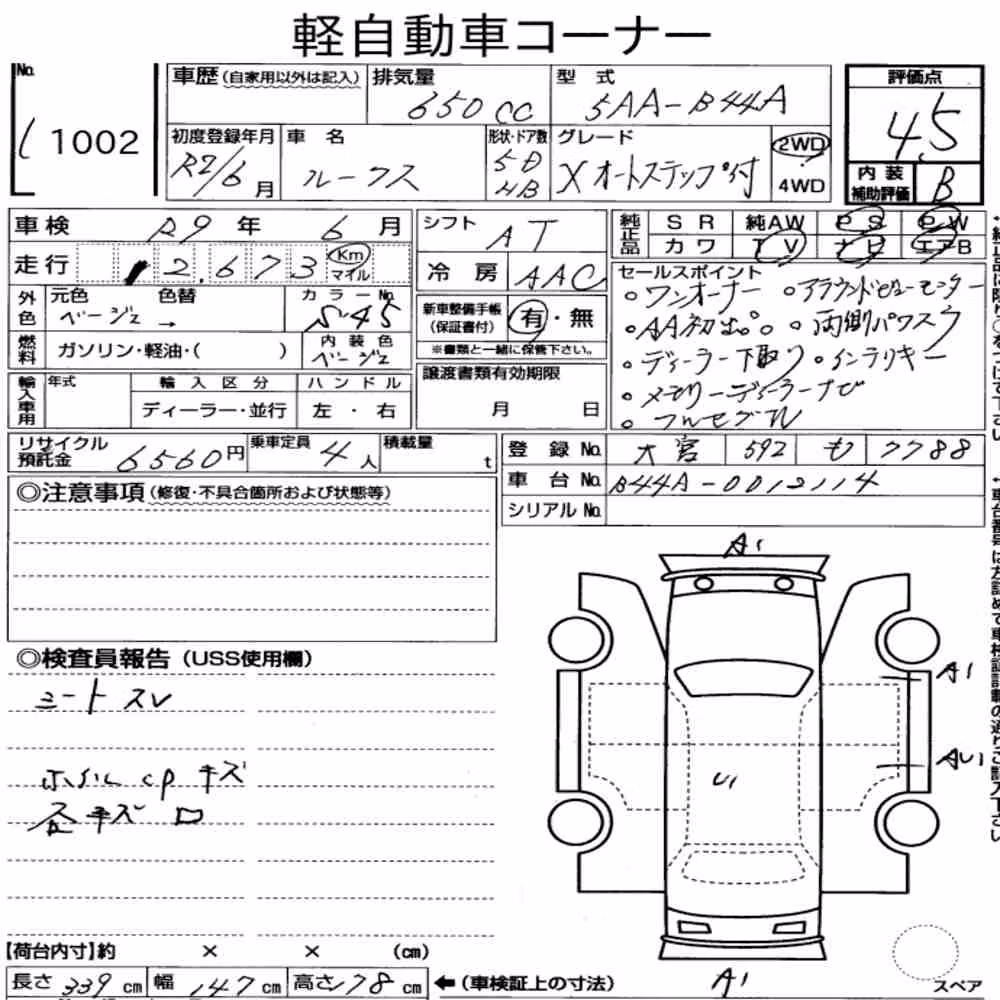 軽自動車コーナー
No. 1002
車歴(自家用以外は記入) 排気量 650cc 型式 5AA-B44A 評価点 4.5
初度登録年月 R2/6月 車名 ルークス 形状・ドア数 5D HB グレード Xオートステップ付 2WD 4WD 内装補助評価 B
車検 R9年 6月 シフト AT 純正品 SR 純AW PS PW
カワ TV ナビ エアB
走行 12,673 Km マイル 冷房 AAC
外色 元色 ベージュ 色替 → カラーNo. S45
新車整備手帳(保証書付) 有・無
※書類と一緒に保管下さい。
燃料 ガソリン・軽油・( ) 内装色 ベージュ
セールスポイント
○ワンオーナー ○アラウンドビューモニター
○AA初出。○両側パワスラ
○ディーラー下取り ○インテリキー
○メモリーディーラーナビ
○フルセグTV
輸入車用 年式 輸入区分 ハンドル
ディーラー・並行 左・右
譲渡書類有効期限
月 日
リサイクル預託金 6560円 乗車定員 4人 積載量 t
登録No. 大宮 592 も 7788
車台No. B44A-0012114
シリアルNo.
◎注意事項(修復・不具合箇所および状態等)
◎検査員報告(USS使用欄)
シートスレ
ホイルcpキズ
各キズ ロ
A1
A1
AU1
U1
A1
スペア
【荷台内寸】約 × × (cm)
長さ 339cm 幅 147cm 高さ 178cm ←(車検証上の寸法)